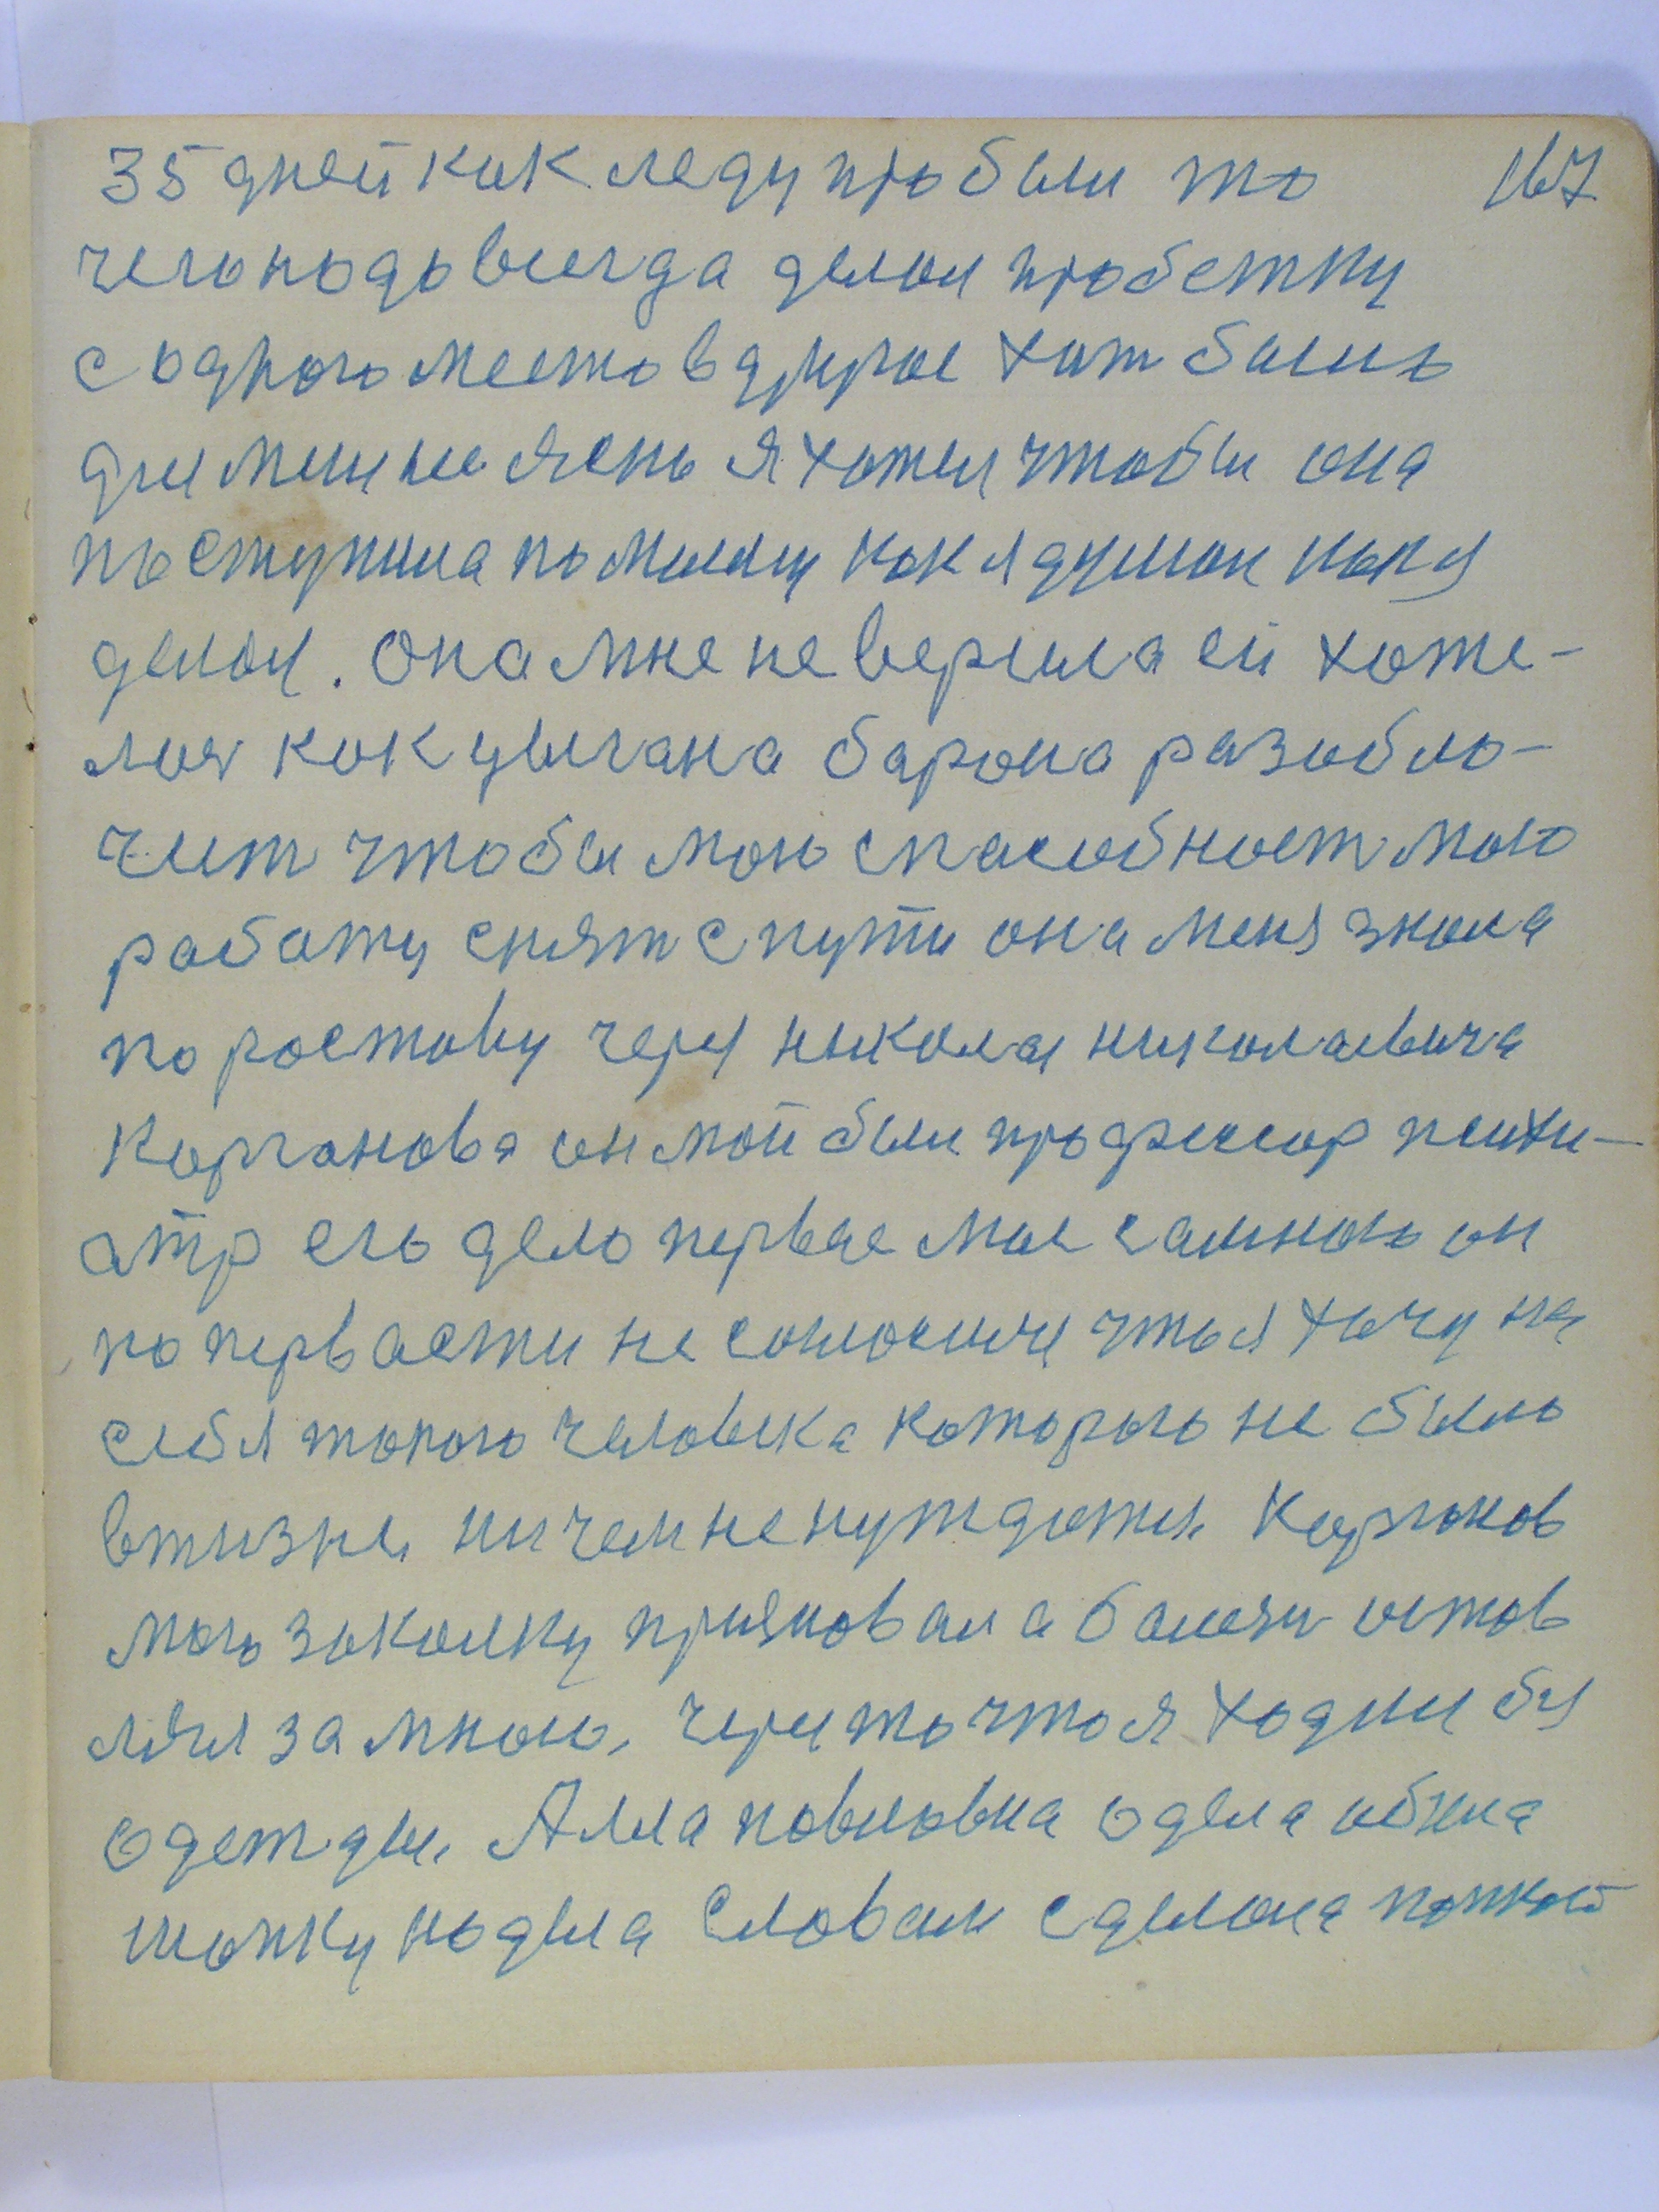 35 дней как леду пробыл то 167
чего надо всегда делал пробежку
с одного место в другое хат было
для мене не ясно я хотел чтобы она
поступила по моему как я думаю
делаю. Она мне не верила ей хоте-
лося как цыгана барона разобло-
чит чтобы мою спасобност мою
работу снят с пути она меня знала
по ростову через николая николаевича
Корганова он мой был професор психи-
атр его дело первае мое самною он
по первасти не согласился что я хочу на
себя токого человека которого не было
в жизне ни чем не нуждатся. Корганов
мого закалку признавал а болезн остав
лял за мною, через то что я ходил без
одежды. Алла павловна одела обула
шапку надела словам сделала